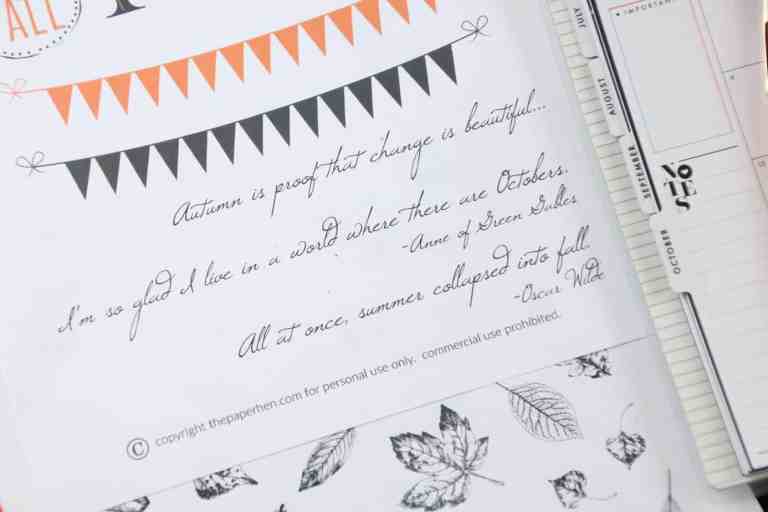 ALL
Autumn is proof that change is beautiful...
I'm so glad I live in a world where there are Octobers.
-Anne of Green Gables
All at once, summer collapsed into fall.
-Oscar Wilde
© copyright thepaperhen.com for personal use only. commercial use prohibited.
JULY
AUGUST
SEPTEMBER
OCTOBER
NOTES